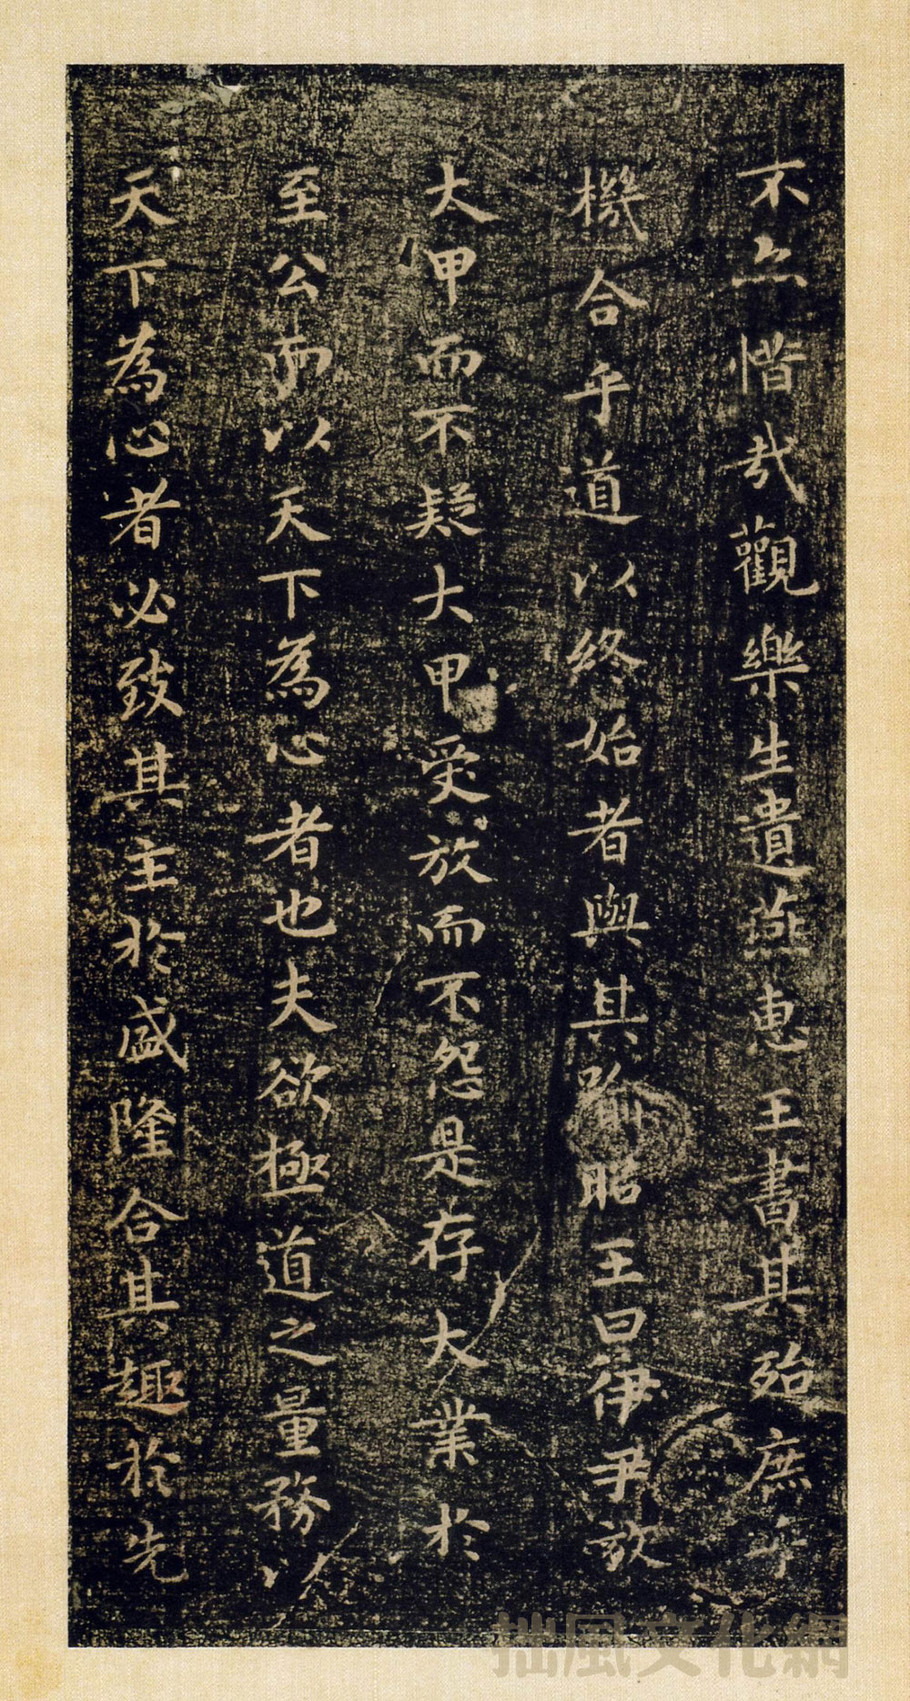 不亦惜哉觀樂生遺燕惠王書其殆庶乎
機合乎道以終始者與其喻昭王曰伊尹放
大甲而不疑大甲受放而不怨是存大業於
至公而以天下為心者也夫欲極道之量務以
天下為心者必致其主於盛隆合其趣於先
拙風文化網